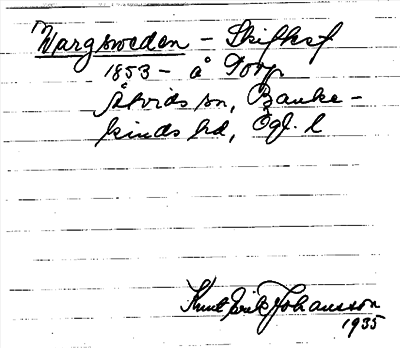 Wargsweden – Skifksf
1853 – å Torp
Åtvids sn, Banke-
kinds hd, Ögl. l
Knut Erik Johansson
1935